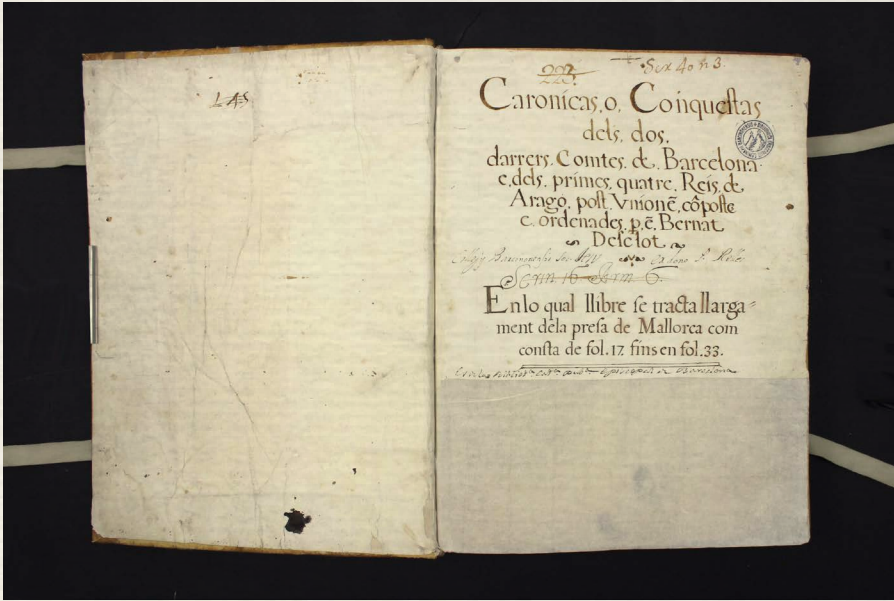 LAS
223
Caronicas, o, Conquestas
dels, dos,
darrers, Comtes, de, Barcelona
e, dels, primes, quatre, Reis, de
Arago, post, Vnionē, cōposte
e, ordenades, p, ē, Bernat
Desclot
Serin 16
En lo qual llibre se tracta llarga=
ment dela presa de Mallorca com
consta de fol. 17. fins en fol. 33.